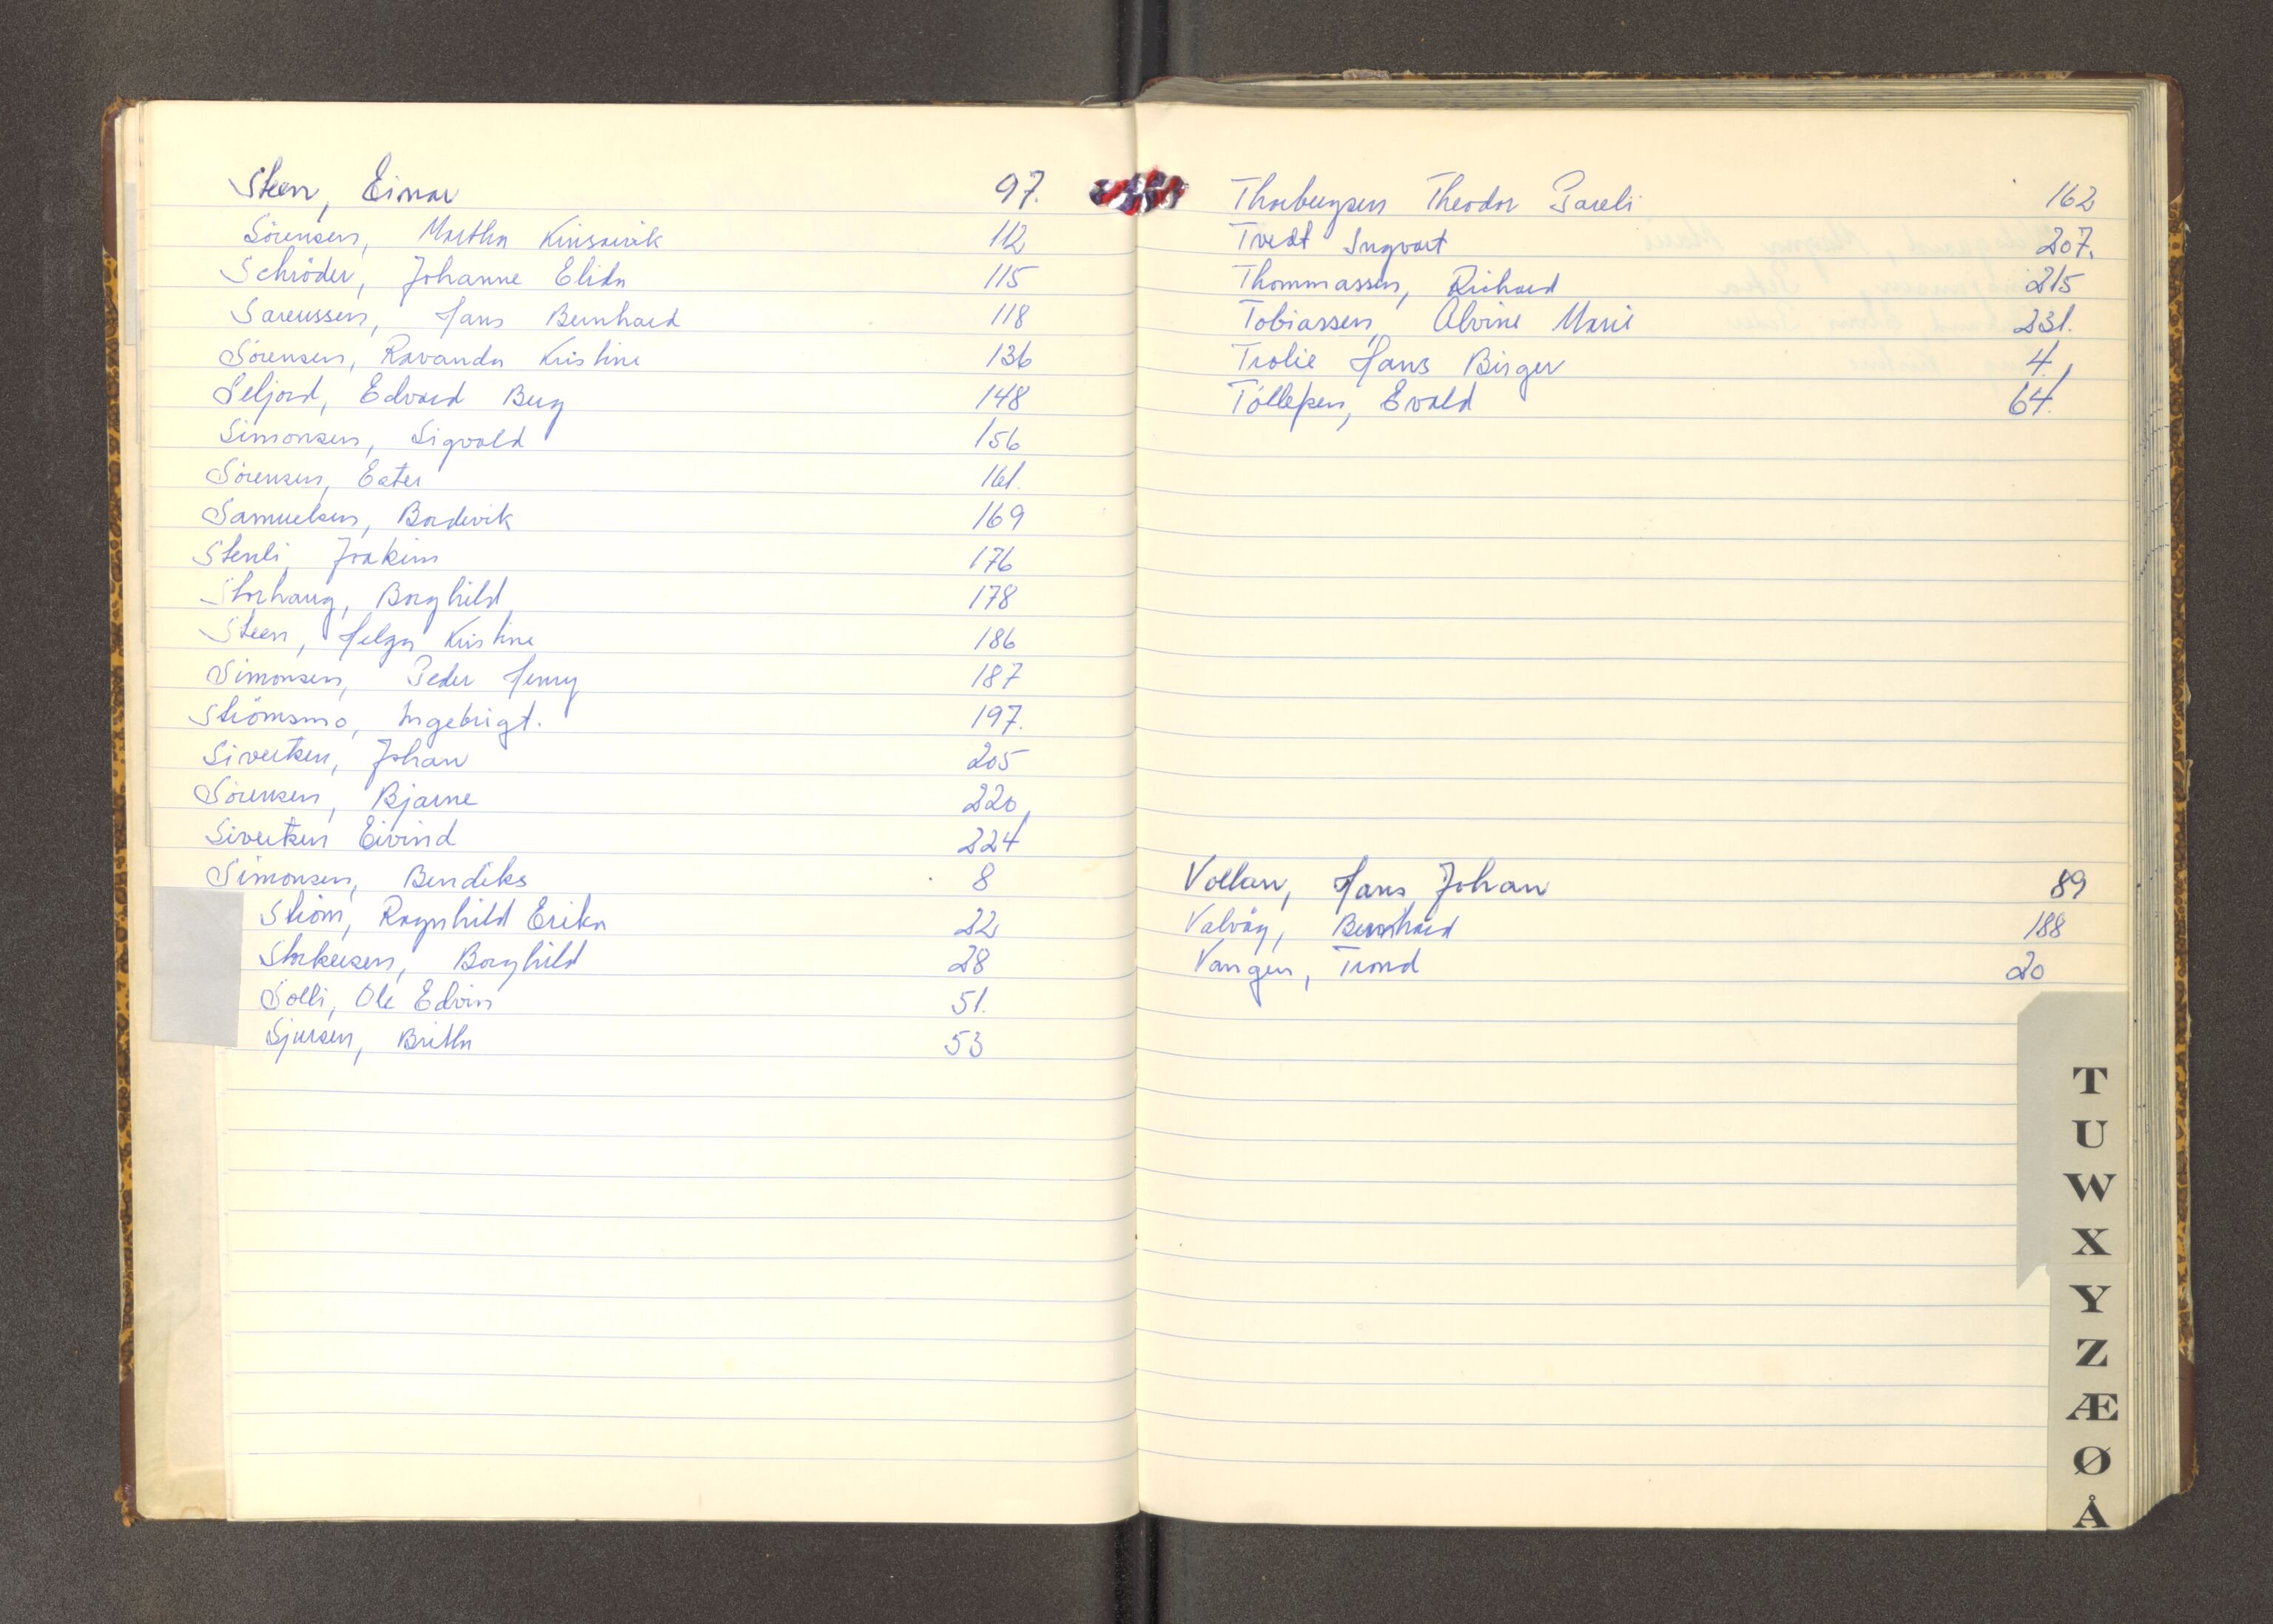 Steen, Einar 97.
Sörensen, Martha Kinsarvik 112
Schröder, Johanne Elida 115
Sareussen, Hans Bernhard 118
Sörensen, Ravanda Kristine 136
Seljord, Edvard Berg 148
Simonsen, Sigvald 156
Sörensen, Ester 161.
Samuelsen, Bordevik 169
Stenli, Joakim 176
Storhaug, Borghild 178
Steen, Helga Kristine 186
Simonsen, Peder Henry 187
Strömsmo, Ingebrigt. 197.
Sivertsen, Johan 205
Sörensen, Bjarne 220
Sivertsen Eivind 224
Simonsen, Bendiks 8
Ström, Ragnhild Erika 22
Storkersen, Borghild 28
Solli, Ole Edvin 51.
Sjursen, Britha 53
Thorbergsen Theodor Pareli 162
Tvedt Ingvart 207.
Thommassen, Richard 215
Tobiassen, Alvine Marie 231.
Trolie Hans Birger 4.
Töllefsen, Evald 64.
Vollan, Hans Johan 89
Valvåg, Bernhard 188
Vangen, Trond 20
T
U
W
X
Y
Z
Æ
Ø
Å